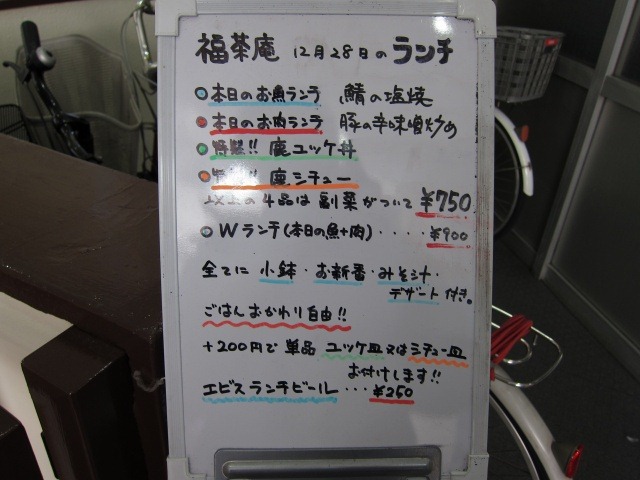 福茶庵 12月28日のランチ
本日のお魚ランチ 鯖の塩焼
本日のお肉ランチ 豚の辛味噌炒め
特製!! 鹿ユッケ丼
鹿シチュー
以上の4品は 副菜がついて ¥750
Wランチ(本日の魚+肉)・・・・¥900
全てに 小鉢・お新香・みそ汁・
デザート 付き。
ごはんおかわり自由!!
+200円で 単品 ユッケ皿又はシチュー皿
お付けします!!
エビスランチビール・・・¥250